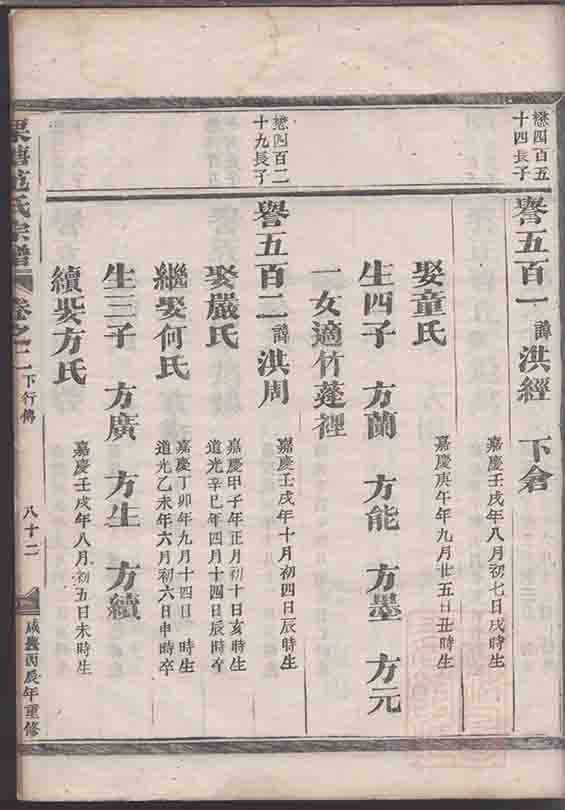 懋四百五
十四長子
譽五百一 諱 洪經 下倉
嘉慶壬戌年八月初七日戌時生
娶童氏
嘉慶庚午年九月廿五日丑時生
生四子 方蘭 方能 方墨 方元
一女適竹蓬裡
懋四百二
十九長子
譽五百二 諱 洪周
嘉慶壬戌年十月初四日辰時生
娶嚴氏
嘉慶甲子年正月初十日亥時生
道光辛巳年四月十四日辰時卒
繼娶何氏
嘉慶丁卯年九月十四日 時生
道光乙未年六月初六日申時卒
生三子 方廣 方生 方續
續娶方氏
嘉慶壬戌年八月初五日未時生
范氏宗譜 卷之二 下行傳 八十二 咸豐丙辰年重修